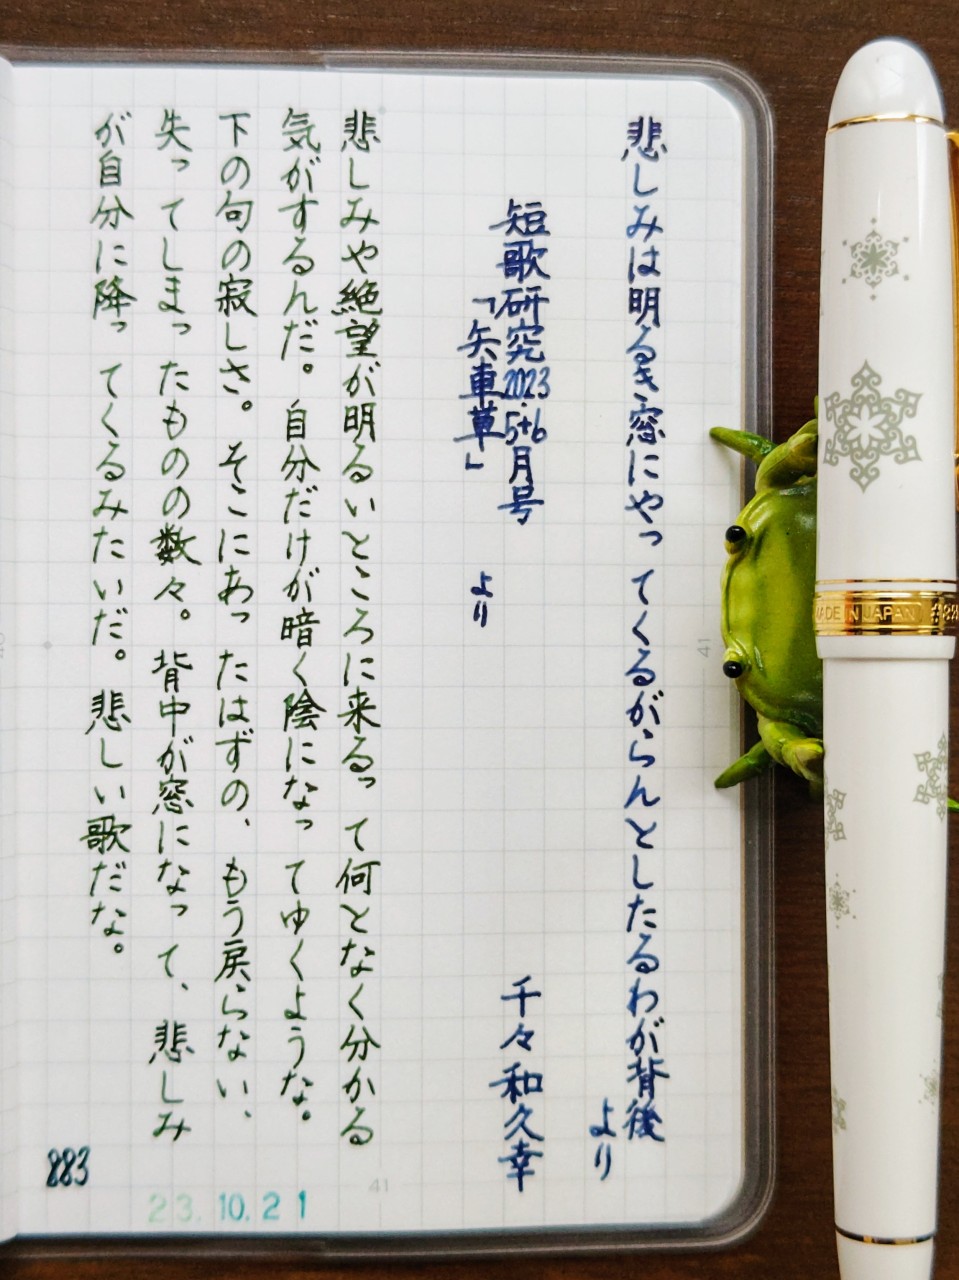 悲しみは明るき窓にやってくるがらんとしたるわが背後
より
短歌研究2023.5+6月号
「矢車草」 より
千々和久幸
悲しみや絶望が明るいところに来るって何となく分かる
気がするんだ。自分だけが暗く陰になってゆくような。
下の句の寂しさ。そこにあったはずの、もう戻らない、
失ってしまったものの数々。背中が窓になって、悲しみ
が自分に降ってくるみたいだ。悲しい歌だな。
883
23.10.21
41
41
MADE IN JAPAN